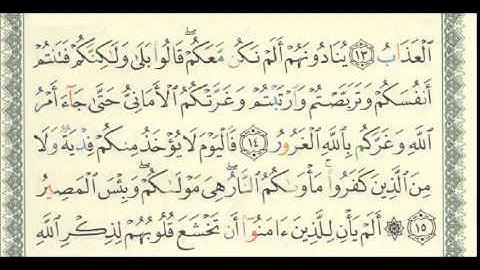 ٱلْعَذَابُ ١٣ يُنَادُونَهُمْ أَلَمْ نَكُن مَّعَكُمْ ۖ قَالُوا۟ بَلَىٰ وَلَٰكِنَّكُمْ فَتَنتُمْ
أَنفُسَكُمْ وَتَرَبَّصْتُمْ وَٱرْتَبْتُمْ وَغَرَّتْكُمُ ٱلْأَمَانِىُّ حَتَّىٰ جَآءَ أَمْرُ
ٱللَّهِ وَغَرَّكُم بِٱللَّهِ ٱلْغَرُورُ ١٤ فَٱلْيَوْمَ لَا يُؤْخَذُ مِنكُمْ فِدْيَةٌ وَلَا
مِنَ ٱلَّذِينَ كَفَرُوا۟ ۚ مَأْوَىٰكُمُ ٱلنَّارُ ۖ هِىَ مَوْلَىٰكُمْ ۖ وَبِئْسَ ٱلْمَصِيرُ
١٥ ۞ أَلَمْ يَأْنِ لِلَّذِينَ ءَامَنُوٓا۟ أَن تَخْشَعَ قُلُوبُهُمْ لِذِكْرِ ٱللَّهِ